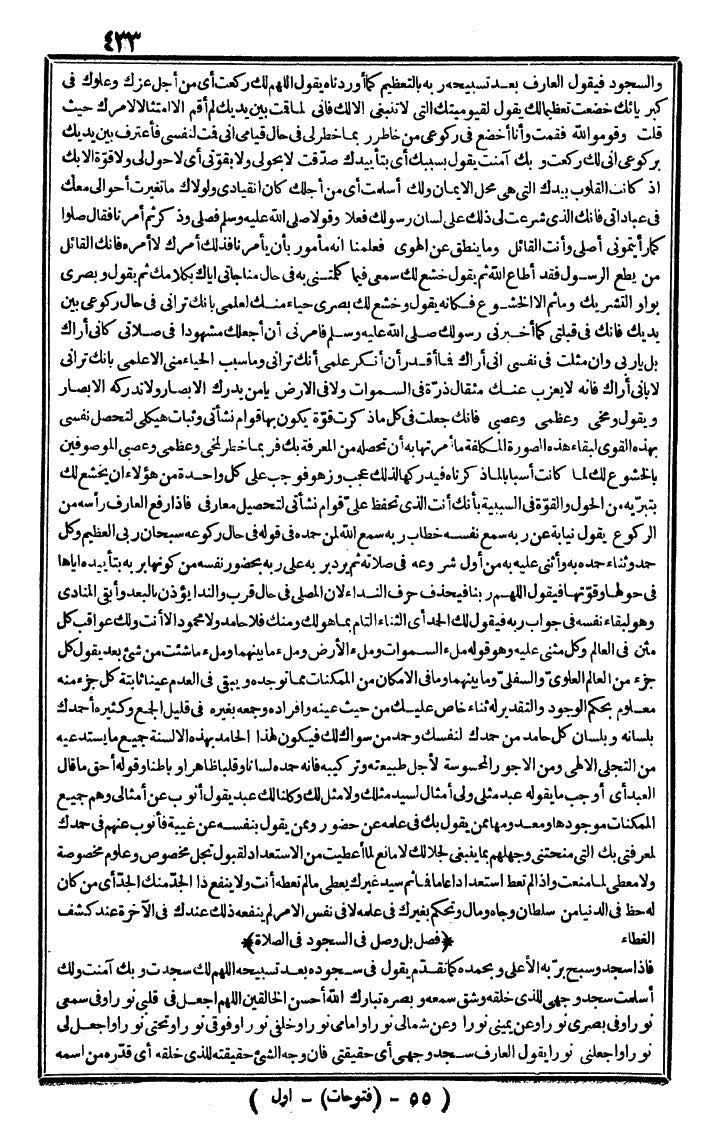 ٤٣٣
والسجود فيقول العارف بعد تسبيحه ربه بالتعظيم كما أوردناه يقول اللهم لك ركعت أى من أجل عزك وعلوك فى
كبريائك خضعت تعظيما لك يقول لقيوميتك التى لا تنبغى الا لك فانى لما قمت بين يديك لم أقم الا امتثالا لامرك حيث
قلت وقوموا لله فقمت وأنا أخضع فى ركوعى من خاطر ربما خطر لى فى حال قيامى انى قمت لنفسى فأعترف بين يديك
بركوعى انى لك ركعت وبك آمنت يقول بسببك أى بتأييدك صدقت لا بحولى ولا بقوتى أى لا حول لى ولا قوة الا بك
اذ كانت القلوب بيدك التى هى محل الايمان ولك أسلمت أى من أجلك كان انقيادى ولولاك ما تغيرت أحوالى معك
فى عباداتى فانك الذى شرعت لى ذلك على لسان رسولك فعلا وقولا صلى الله عليه وسلم فصلى وذكر ثم أمرنا فقال صلوا
كما رأيتمونى أصلى وأنت القائل وما ينطق عن الهوى فعلمنا انه مأمور بأن يأمرنا فذلك أمرك لا أمره فانك القائل
من يطع الرسول فقد أطاع الله ثم يقول خشع لك سمعى فيما كلمتنى به فى حال مناجاتى اياك بكلامك ثم يقول وبصرى
بواو التشريك وما ثم الا الخشوع فكانه يقول وخشع لك بصرى حياء منك لعلمى بانك ترانى فى حال ركوعى بين
يديك فانك فى قبلتى كما أخبرنى رسولك صلى الله عليه وسلم فامرنى أن أجعلك مشهودا فى صلاتى كانى أراك
بل يا ربى وان مثلت فى نفسى انى أراك فما أقدر أن أنكر علمى أنك ترانى وما سبب الحياء منى الا علمى بانك ترانى
لا بانى أراك فانه لا يعزب عنك مثقال ذرة فى السموات ولا فى الارض يا من يدرك الابصار ولا تدركه الابصار
ويقول ومخى وعظمى وعصبى فانك جعلت فى كل ما ذكرت قوة يكون بها قوام نشأتى وثبات هيكلى لتحصل نفسى
بهذه القوى لبقاء هذه الصورة المكلفة ما أمرتها به أن تحصله من المعرفة بك فربما خطر لمخى وعظمى وعصبى الموصوفين
بالخشوع لك لما كانت أسبابا لما ذكرناه فيدركها لذلك عجب وزهو فوجب على كل واحدة من هؤلاء ان يخشع لك
بتبريه من الحول والقوة فى السببية بأنك أنت الذى تحفظ على قوام نشأتى لتحصيل معارفى فاذا رفع العارف رأسه من
الركوع يقول نيابة عن ربه سمع نفسه خطاب ربه سمع الله لمن حمده فى قوله فى حال ركوعه سبحان ربى العظيم وكل
حمد وثناء حمده به وأثنى عليه به من أول شروعه فى صلاته ثم يرد بر به على ربه بحضور نفسه من كونها بربه بتأييده اياها
فى حولها وقوتها فيقول اللهم ربنا فيحذف حرف النداء لان المصلى فى حال قرب والندا يؤذن بالبعد وأبقى المنادى
وهو لبقاء نفسه فى جواب ربه فيقول لك الحمد أى الثناء التام بما هو لك ومنك فلا حامد ولا محمود الا أنت ولك عواقب كل
مثن فى العالم وكل مثنى عليه وهو قوله ملء السموات وملء الأرض وملء ما بينهما وملء ما شئت من شئ بعد يقول كل
جزء من العالم العلوى والسفلى وما بينهما وما فى الامكان من الممكنات مما توجده ويبقى فى العدم عينا ثابتة كل جزء منه
معلوم بحكم الوجود والتقدير له ثناء خاص عليك من حيث عينه وافراده وجمعه بغيره فى قليل الجمع وكثيره أحمدك
بلسانه وبلسان كل حامد من حمدك لنفسك وحمد من سواك لك فيكون لهذا الحامد بهذه الالسنة جميع ما يستدعيه
من التجلى الالهى ومن الاجور المحسوسة لأجل طبيعته وتركيبه فانه حمده لسانا وقلبا ظاهرا وباطنا وقوله أحق ما قال
العبد أى أوجب ما يقوله عبد مثلى ولى أمثال لسيد مثلك ولا مثل لك وكلنا لك عبد يقول أنوب عن أمثالى وهم جميع
الممكنات موجودها ومعدومها ممن يقول بك فى علمه عن حضور وممن يقول بنفسه عن غيبة فأنوب عنهم فى حمدك
لمعرفتى بك التى منحتنى وجهلهم بما ينبغى لجلالك لا مانع لما أعطيت من الاستعداد لقبول تجل مخصوص وعلوم مخصوصة
ولا معطى لما منعت واذا لم تعط استعدادا عاما فما ثم سيد غيرك يعطى ما لم تعطه أنت ولا ينفع ذا الجد منك الجد أى من كان
له حظ فى الدنيا من سلطان وجاه ومال وتحكم بغيرك فى علمه لا فى نفس الامر لم ينفعه ذلك عندك فى الآخرة عند كشف
الغطاء ﴿فصل بل وصل فى السجود فى الصلاة﴾
فاذا سجد وسبح بربه الأعلى وبحمده كما تقدم يقول فى سجوده بعد تسبيحه اللهم لك سجدت وبك آمنت ولك
أسلمت سجد وجهى للذى خلقه وشق سمعه وبصره تبارك الله أحسن الخالقين اللهم اجعل فى قلبى نورا وفى سمعى
نورا وفى بصرى نورا وعن يمينى نورا وعن شمالى نورا وامامى نورا وخلفى نورا وفوقى نورا وتحتى نورا واجعل لى
نورا واجعلنى نورا يقول العارف سجد وجهى أى حقيقتى فان وجه الشئ حقيقته للذى خلقه أى قدره من اسمه
( ٥٥ - (فتوحات) - اول )